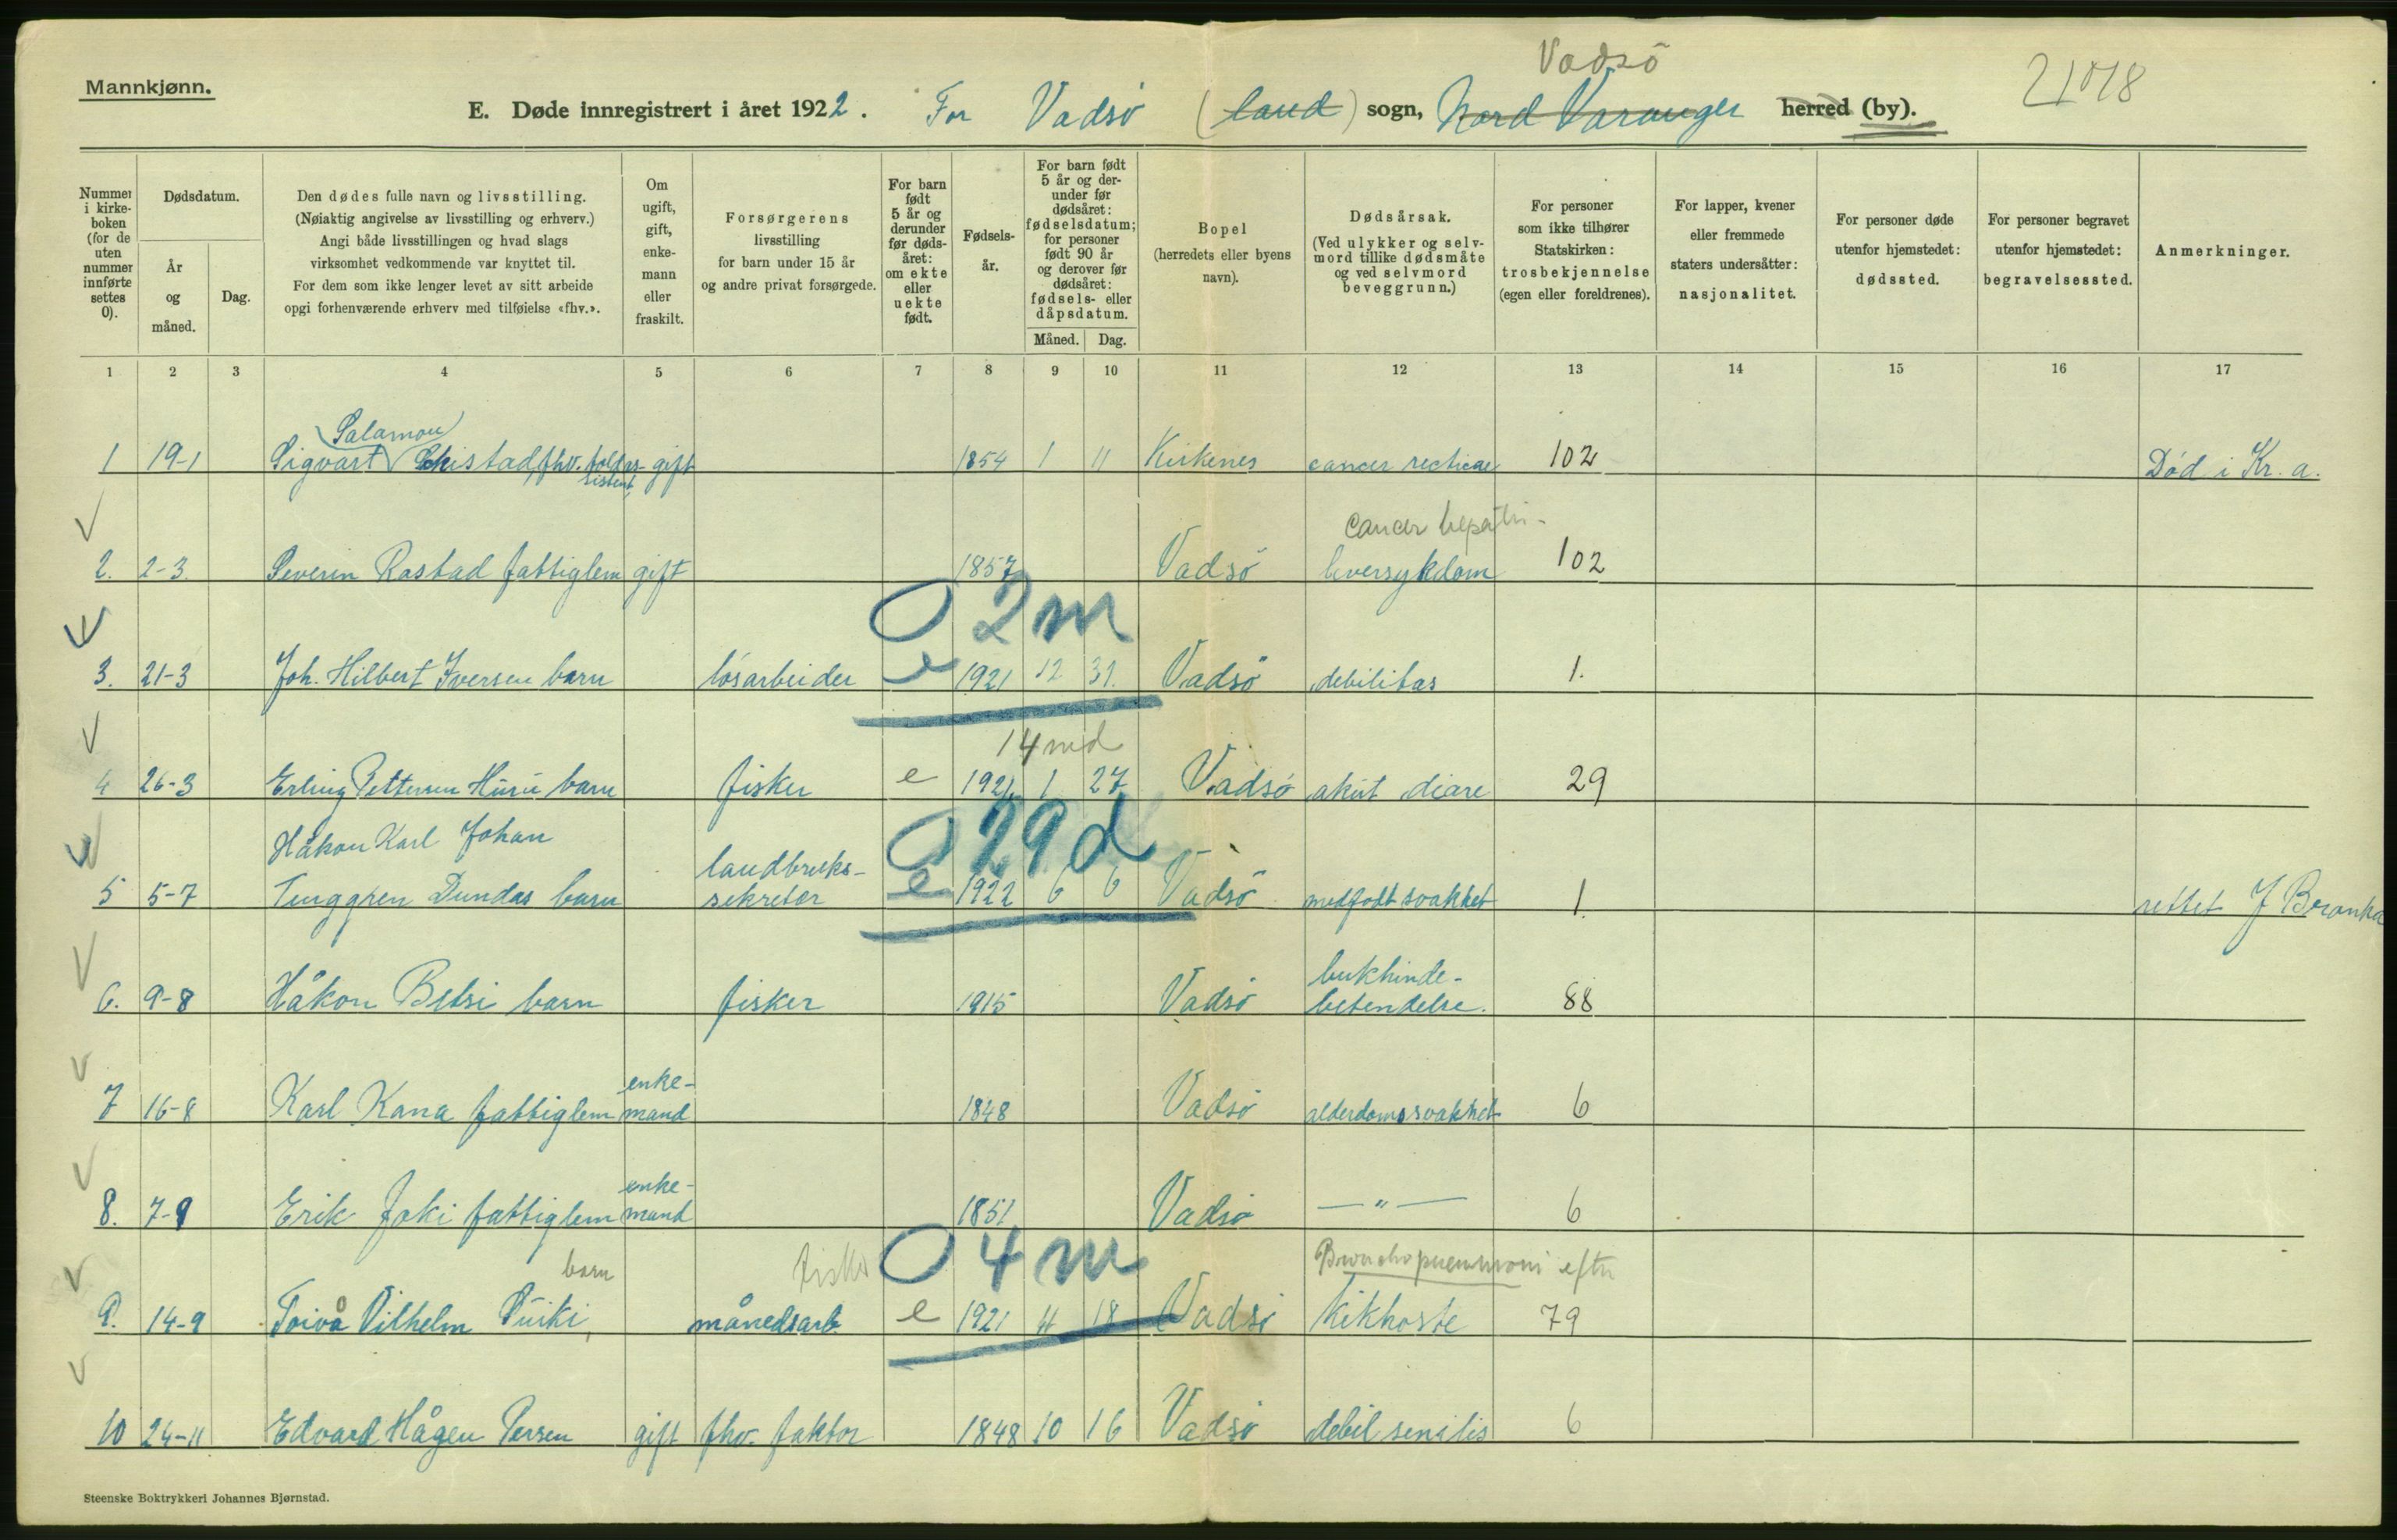 Vadsö
Mannkjønn.
21018
E. Døde innregistrert i året 1922. For Vadsö (land) sogn, Nord Varanger herred (by).
Nummer i kirkeboken (for de uten nummer innførte settes 0).
Dødsdatum.
År og måned.
Dag.
Den dødes fulle navn og livsstilling.
(Nøiaktig angivelse av livsstilling og erhverv.)
Angi både livsstillingen og hvad slags
virksomhet vedkommende var knyttet til.
For dem som ikke lenger levet av sitt arbeide
opgi forhenværende erhverv med tilføielse «fhv.».
Om ugift, gift, enkemann eller fraskilt.
Forsørgerens
livsstilling
for barn under 15 år
og andre privat forsørgede.
For barn født 5 år og derunder før dødsåret: om ekte eller uekte født.
Fødselsår.
For barn født 5 år og derunder før dødsåret: fødselsdatum; for personer født 90 år og derover før dødsåret: fødsels- eller dåpsdatum.
Måned. Dag.
Bopel
(herredets eller byens
navn).
Dødsårsak.
(Ved ulykker og selvmord tillike dødsmåte og ved selvmord beveggrunn.)
For personer
som ikke tilhører
Statskirken:
trosbekjennelse
(egen eller foreldrenes).
For lapper, kvener
eller fremmede
staters undersåtter:
nasjonalitet.
For personer døde
utenfor hjemstedet:
dødssted.
For personer begravet
utenfor hjemstedet:
begravelsessted.
Anmerkninger.
1 2 3 4 5 6 7 8 9 10 11 12 13 14 15 16 17
Salamon
1 19-1 Sigvart Schistad, fhv. tollas- gift 1854 1 11 Kirkenes cancer recticae 102 Död i Kr. a.
sistent,
cancer hepatis
2. 2-3. Severin Rastad fattiglem gift 1857 Vadsö leversykdom 102
0 2 m
3. 21-3 Joh. Hilbert Iversen barn lösarbeider e 1921 12 31. Vadsö debilitas 1.
14 md
4 26-3 Erling Pettersen Huru barn fisker e 1921 1 27 Vadsö akut diare 29
0 29 d
Håkon Karl Johan landbruks-
5 5-7 Tenggren Dundas barn sekretær e 1922 6 6 Vadsö medfødt svakhet 1. rettet J
bukhinde-
6. 9-8 Håkon Betsi barn fisker 1915 Vadsö betendelse. 88
enke-
7 16-8 Karl Kana fattiglem mand 1848 Vadsö alderdomssvakhet 6
enke-
8. 7-9 Erik Joki fattiglem mand 1851 Vadsö —"— 6
barn fisker 0 4 m Bronchopneumoni efter
9. 14-9 Toivå Vilhelm Puiki, månedsarb. e 1921 4 18 Vadsö kikhoste 79
10 24-11 Edvard Hågen Persen gift fhv. faktor 1848 10 16 Vadsö debil senilis 6
Steenske Boktrykkeri Johannes Bjørnstad.